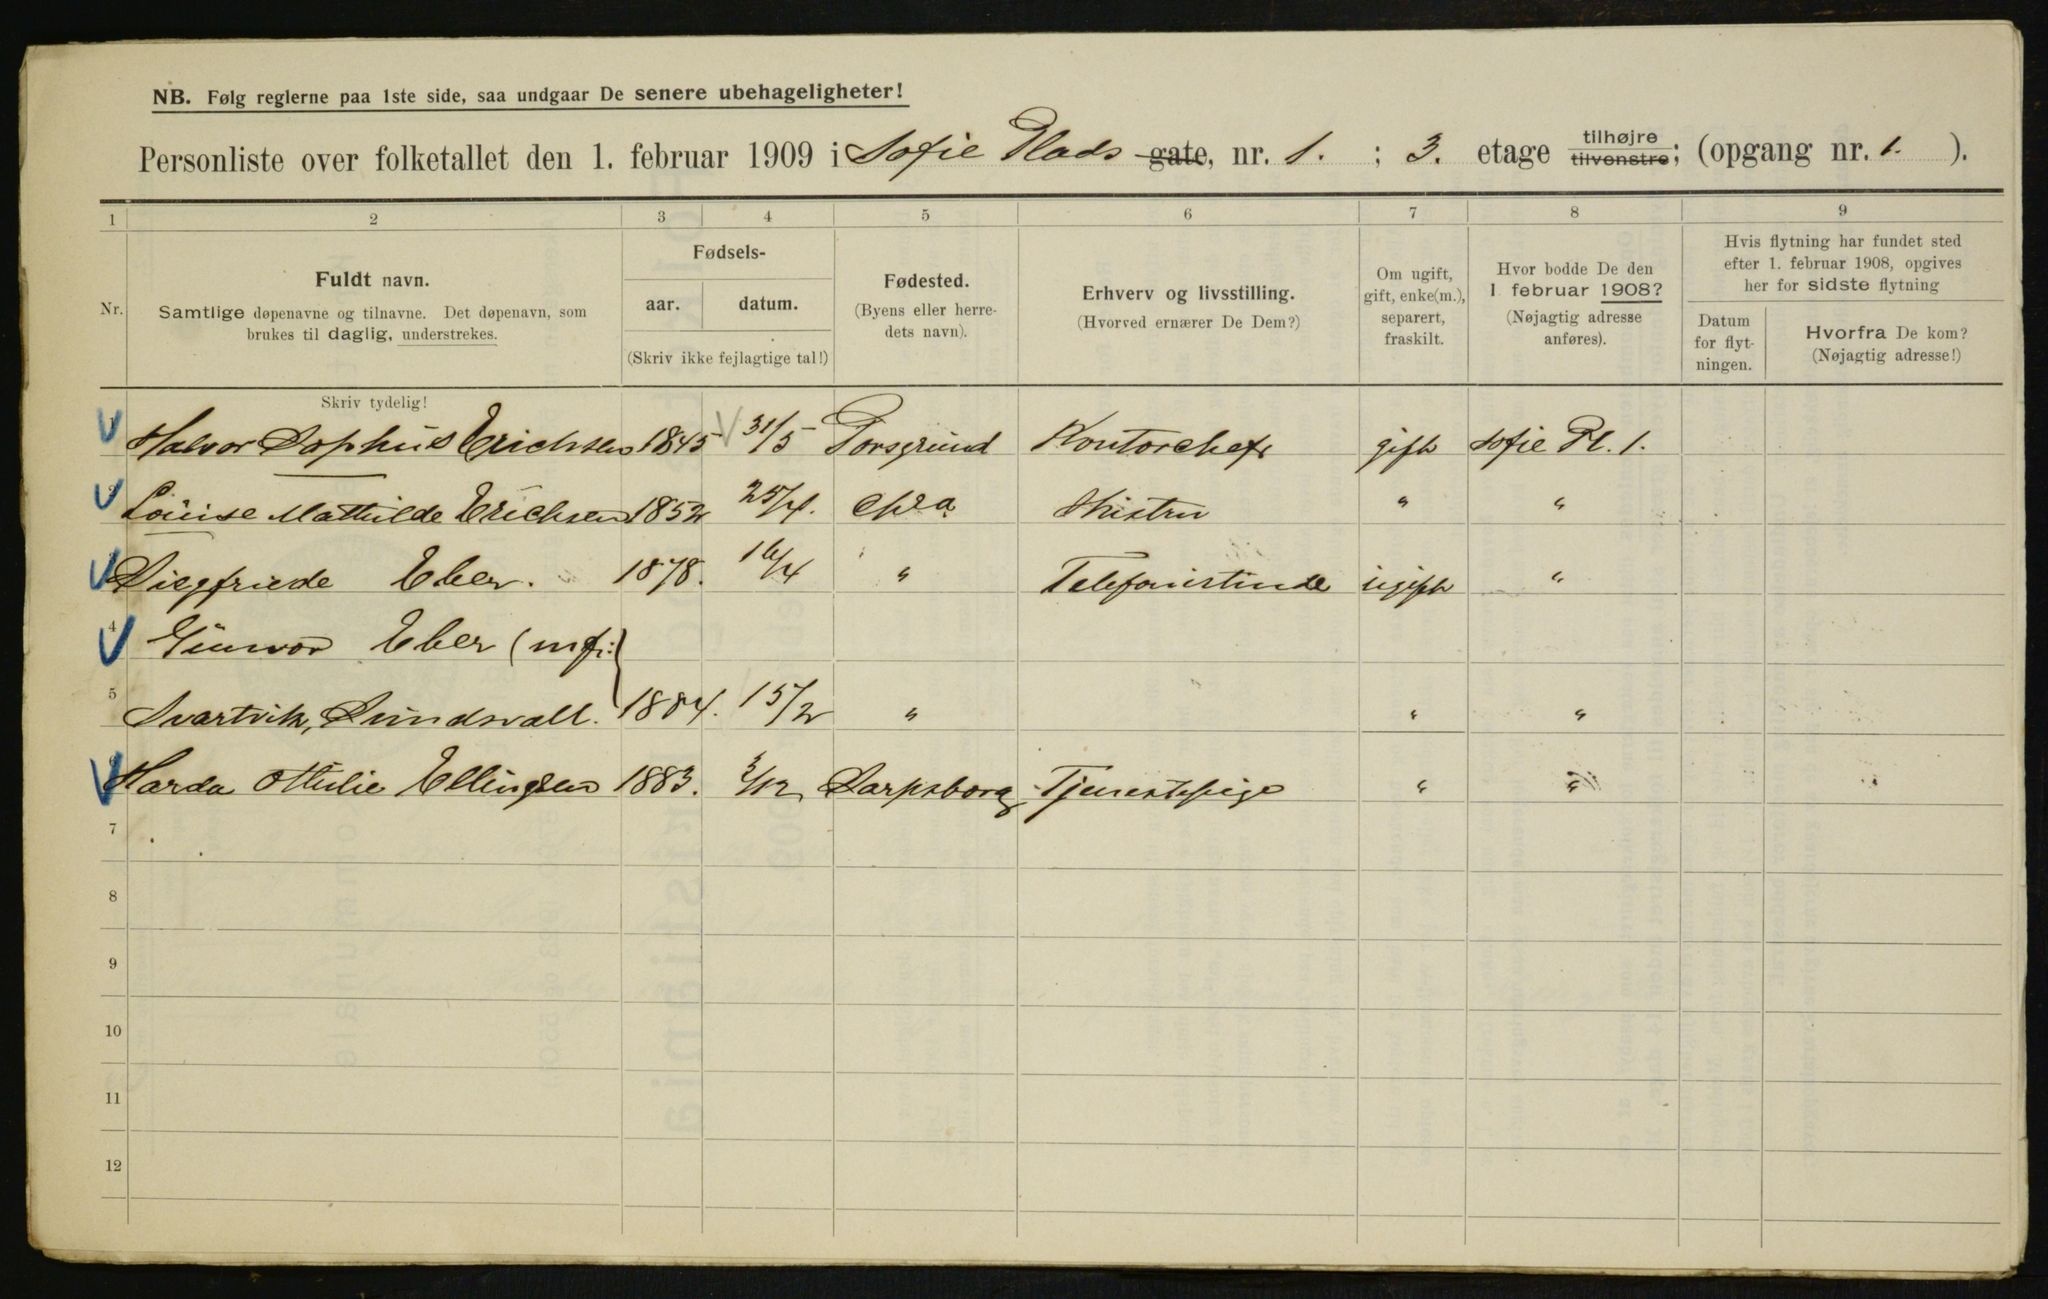 NB. Følg reglerne paa 1ste side, saa undgaar De senere ubehageligheter!
Personliste over folketallet den 1. februar 1909 i Sofie Plads gate, nr. 1. ; 3. etage tilhøjre tilvenstre; (opgang nr. 1. ).
1 2 3 4 5 6 7 8 9
Nr.
Fuldt navn.
Samtlige døpenavne og tilnavne. Det døpenavn, som
brukes til daglig, understrekes.
Fødsels-
aar. datum.
(Skriv ikke fejlagtige tal!)
Fødested.
(Byens eller herre-
dets navn).
Erhverv og livsstilling.
(Hvorved ernærer De Dem?)
Om ugift,
gift, enke(m.),
separert,
fraskilt.
Hvor bodde De den
1 februar 1908?
(Nøjagtig adresse
anføres).
Hvis flytning har fundet sted
efter 1. februar 1908, opgives
her for sidste flytning
Datum
for flyt-
ningen.
Hvorfra De kom?
(Nøjagtig adresse!)
Skriv tydelig!
Halvor Sophus Erichsen 1845 31/5 Porsgrund Kontorchef gift Sofie Pl. 1.
Louise Mathilde Erichsen 1852 25/4. Chra Hustru " "
Siegfriede Eber. 1878. 16/4 " Telefonistinde ugift "
4 Gunvor Eber (mf:)
5 Svartvik, Sundsvall. 1884. 15/2 " " "
Harda Othilie Ellingsen 1883. 3/12 Sarpsborg Tjenestepige " "
7
8
9
10
11
12